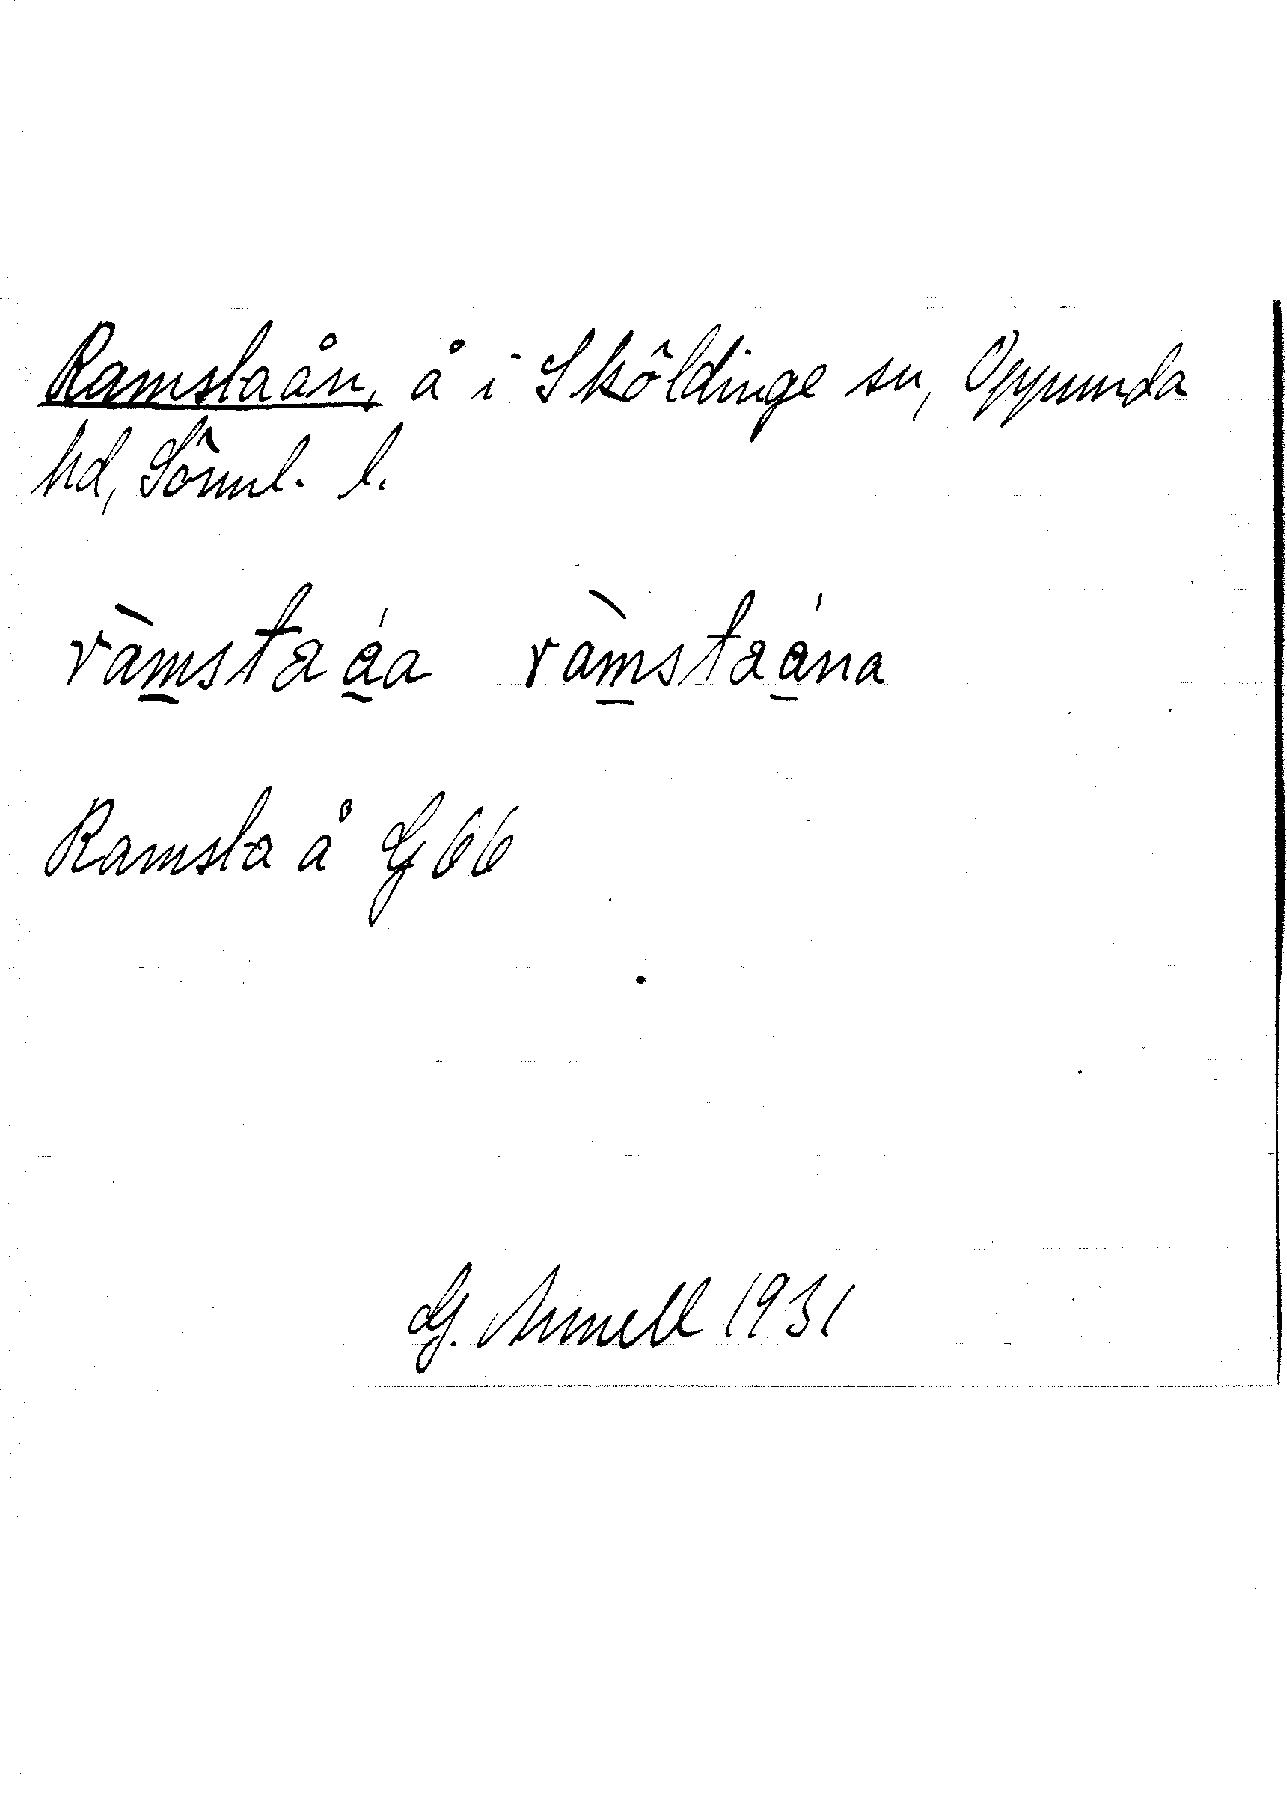 Ramstaån, å i Sköldinge sn, Oppunda
hd, Sörml. l.
ràmstaáa ràmstaána
Ramsta å G66
G. Armell 1931